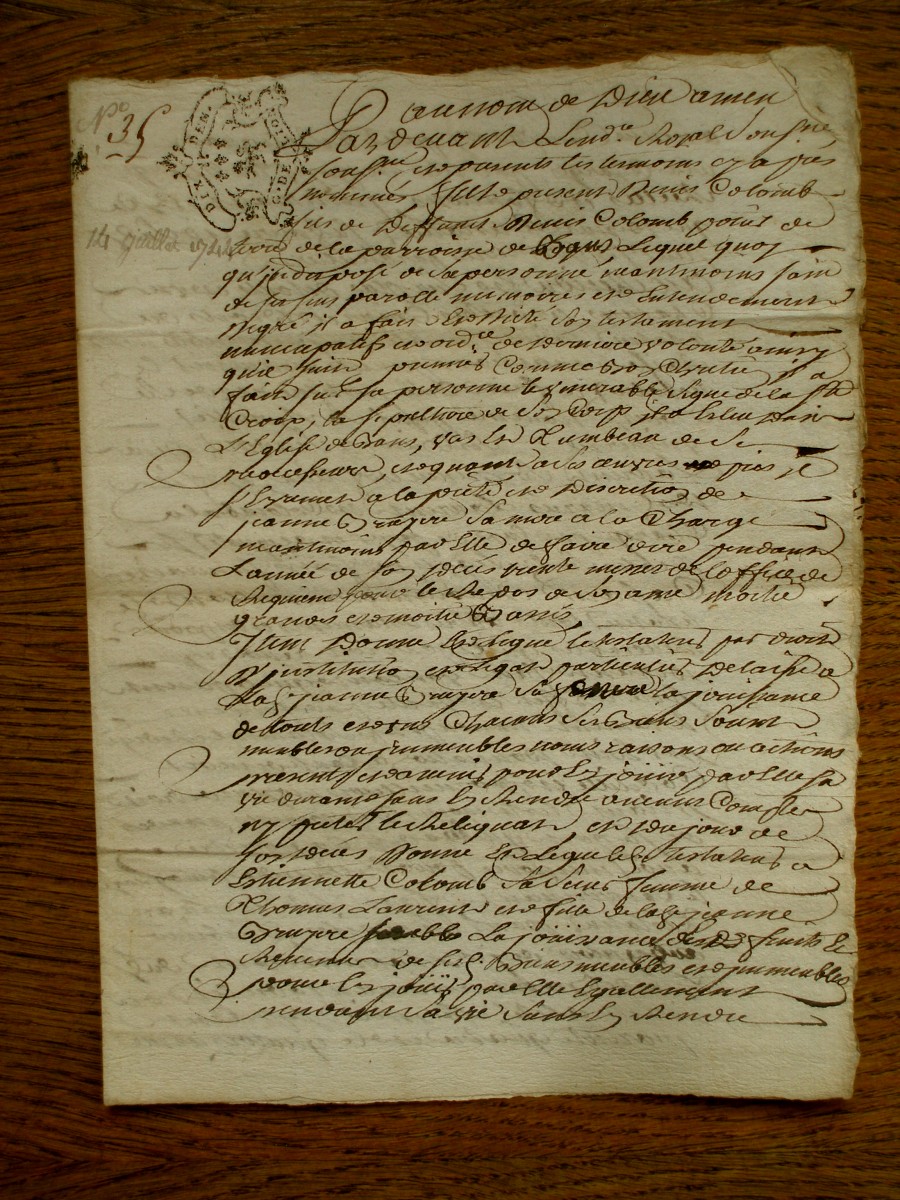 N° 35
DIX DEN
G. DE LION
14 Juillet 174
au nom de Dieu amen
Pardevant Le no.re Royal soussigné
soussigné, et presents les temoins cy apres
nommés fut present Denis Colomb
fils de deffunt Denis Colomb
de la parroisse de Lequel quoy
qu'indisposé de sa personne neantmoins sain
de ses sens parolle memoires et Entendement
degré il a fait et dicté son testament
nuncupatif et ord.ce de derniere volonté ainsy
qu'il suit premier comme bon Chretien il a
fait sur sa personne le venerable signe de la s.te
Croix, la sepulture de son Corp il a Esleu dans
L'Eglise de vas et Tumbeau de se
predecesseurs, et quant a ses œuvres pies il
s'En remet a la pieté et Discretion de
jeanne sa mere a la Charge
neantmoins par Elle de faire dire pendant
L'année de son deces trente messes de L'office de
Requiem pour le Repos de son ame moitié
grandes et moitié basses
Item Donne et Legue le testateur par droit
D'institution et Legat particulier delaisse a
lad. jeanne sa mere la jouissance
de touts et uns Chacuns ses biens soient
meubles ou jmmeubles noms raisons ou actions
presents et avenir pour En joüir par Elle sa
vie durant sans En Rendre aucun Compte
ny preter le Reliquat, et du jour de
son deces Donne et Legue led. testateur a
Estiennette Colomb sa seur femme de
Thomas Laurent et fille de lad. jeanne
La joüissance des fruits et
Revenus de sesd. biens meubles et jmmeubles
pour En joüir par Elle Egallement
pendant sa vie sans En Rendre